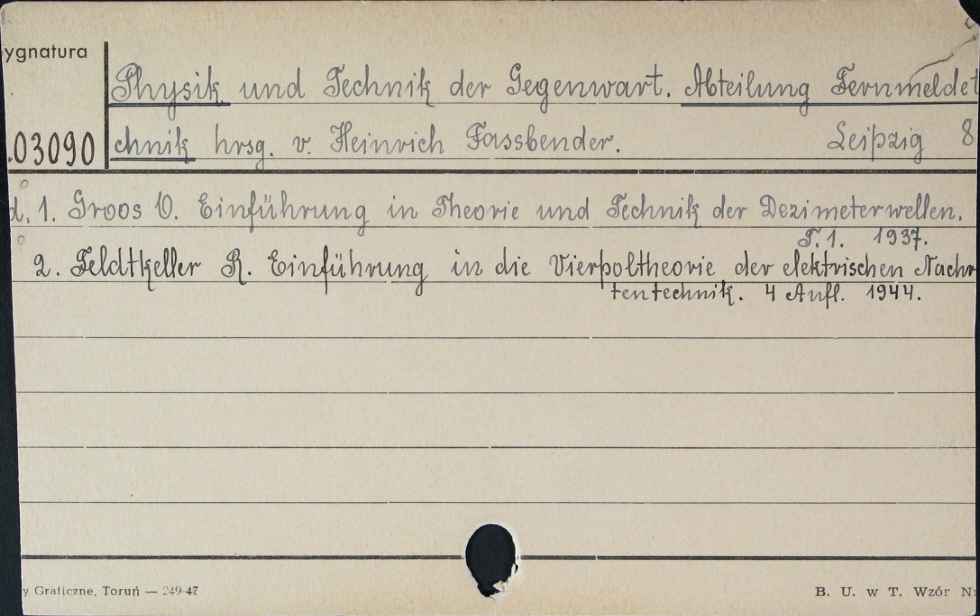 ygnatura
Physik und Technik der Gegenwart. Abteilung Fernmeldet
.03090 chnik hrsg. v. Heinrich Fassbender. Leipzig 8
d. 1. Groos O. Einführung in Theorie und Technik der Dezimeterwellen.
T. 1. 1937.
2. Feldtkeller R. Einführung in die Vierpoltheorie der elektrischen Nachr
tentechnik. 4 Aufl. 1944.
y Graficzne, Toruń — 249-47 B. U. w T. Wzór N